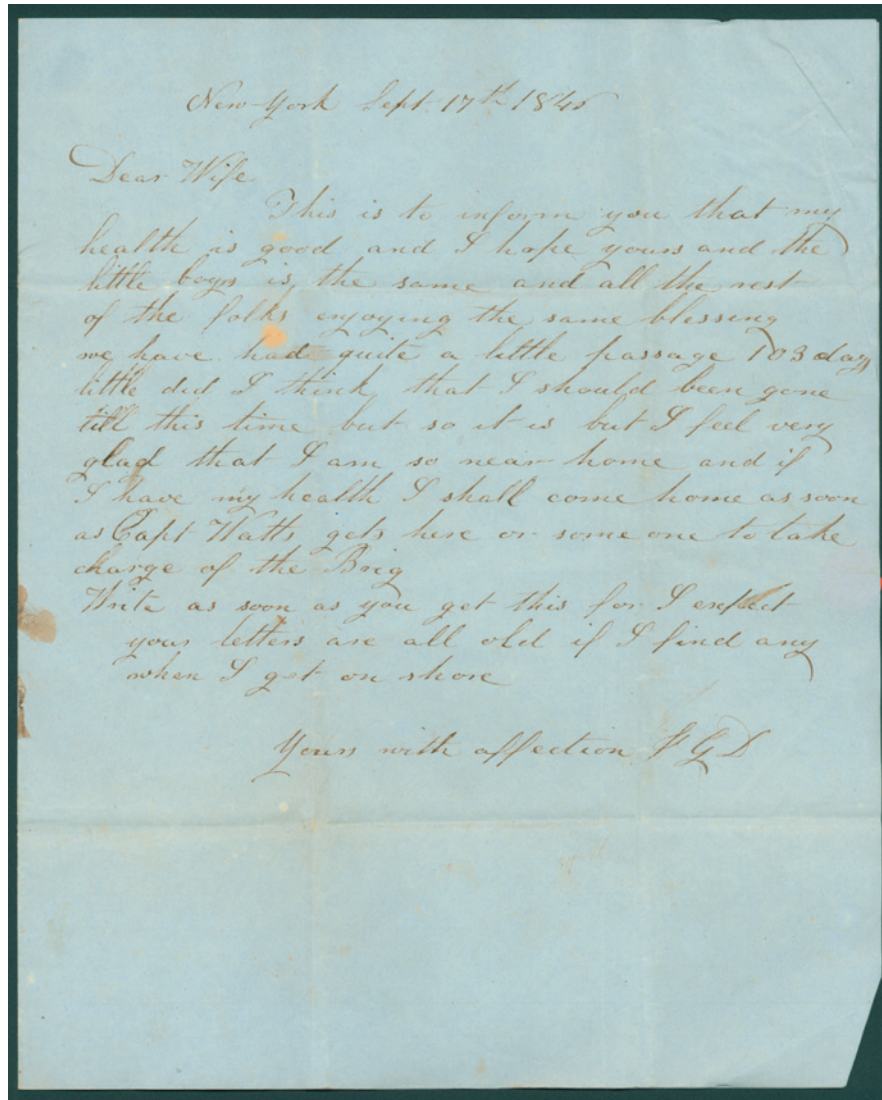 New-York Sept. 17th 1846
Dear Wife
This is to inform you that my
health is good and I hope yours and the
little boys is, the same and all the rest
of the folks enjoying the same blessing
we have had quite a little passage 103 days
little did I think that I should been gone
till this time but so it is but I feel very
glad that I am so near home and if
I have my health I shall come home as soon
as Capt Watts gets here or some one to take
charge of the Brig
Write as soon as you get this for I expect
your letters are all old if I find any
when I get on shore
Yours with affection J G D